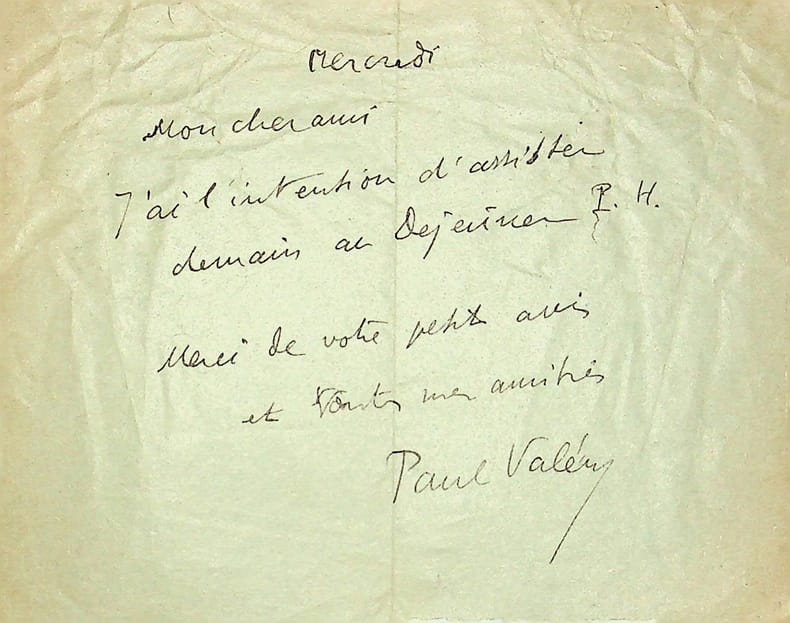 Mercredi
Mon cher ami
J'ai l'intention d'assister
demain au Déjeuner P. H.
Merci de votre petit avis
et toutes mes amitiés
Paul Valéry